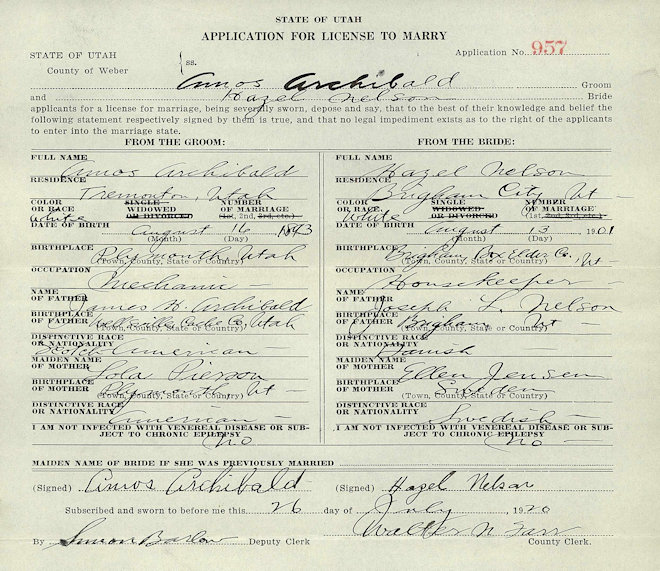 STATE OF UTAH
APPLICATION FOR LICENSE TO MARRY
STATE OF UTAH
County of Weber
ss.
Application No. 957
Amos Archibald Groom
and Hazel Nelson Bride
applicants for a license for marriage, being severally sworn, depose and say, that to the best of their knowledge and belief the
following statement respectively signed by them is true, and that no legal impediment exists as to the right of the applicants
to enter into the marriage state.
FROM THE GROOM:
FULL NAME Amos Archibald
RESIDENCE Tremonton, Utah
COLOR OR RACE White SINGLE WIDOWED OR DIVORCED NUMBER OF MARRIAGE (1st, 2nd, 3rd, etc.)
DATE OF BIRTH August 16
(Month) (Day)
BIRTHPLACE Plymouth, Utah
(Town, County, State or Country)
OCCUPATION Mechanic
NAME OF FATHER James H. Archibald
BIRTHPLACE OF FATHER Cache Co, Utah
(Town, County, State or Country)
DISTINCTIVE RACE OR NATIONALITY Scotch American
MAIDEN NAME OF MOTHER Lola Pierson
BIRTHPLACE OF MOTHER Plymouth, Ut
(Town, County, State or Country)
DISTINCTIVE RACE OR NATIONALITY American
I AM NOT INFECTED WITH VENEREAL DISEASE OR SUB-
JECT TO CHRONIC EPILEPSY
No
FROM THE BRIDE:
FULL NAME Hazel Nelson
RESIDENCE Brigham City, Ut
COLOR OR RACE White SINGLE WIDOWED OR DIVORCED NUMBER OF MARRIAGE (1st, 2nd, 3rd, etc.)
DATE OF BIRTH August 13 1901
(Month) (Day)
BIRTHPLACE Brigham Box Elder Co. Ut
(Town, County, State or Country)
OCCUPATION Housekeeper
NAME OF FATHER Joseph L. Nelson
BIRTHPLACE OF FATHER Brigham, Ut
(Town, County, State or Country)
DISTINCTIVE RACE OR NATIONALITY Danish
MAIDEN NAME OF MOTHER Ellen Jensen
BIRTHPLACE OF MOTHER Sweden
(Town, County, State or Country)
DISTINCTIVE RACE OR NATIONALITY Swedish
I AM NOT INFECTED WITH VENEREAL DISEASE OR SUB-
JECT TO CHRONIC EPILEPSY
No
MAIDEN NAME OF BRIDE IF SHE WAS PREVIOUSLY MARRIED
(Signed) Amos Archibald (Signed) Hazel Nelson
Subscribed and sworn to before me this 26 day of July, 1920
Walter N Farr
By Simon Barlow Deputy Clerk. County Clerk.